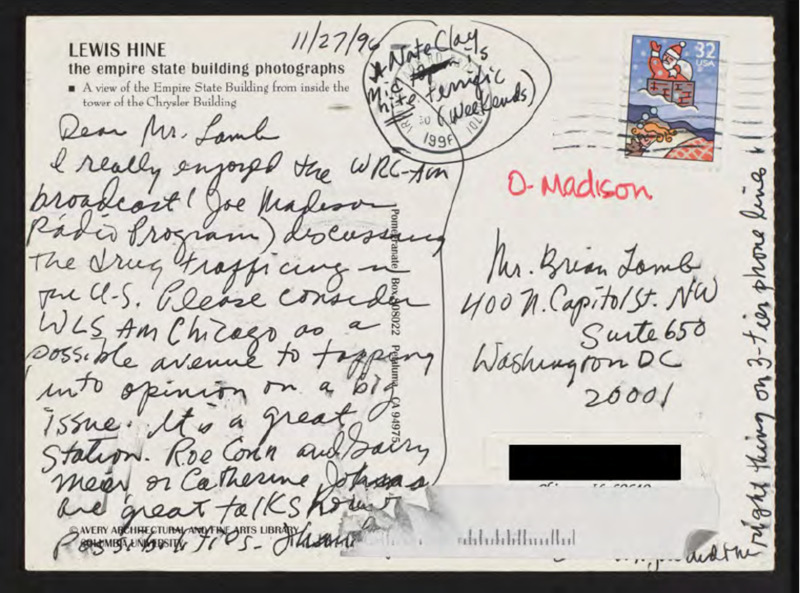 LEWIS HINE
the empire state building photographs
■ A view of the Empire State Building from inside the
tower of the Chrysler Building
11/27/96
Dear Mr. Lamb
I really enjoyed the WRC-AM
broadcast (Joe Madison
Radio Program) discussing
the drug trafficing in
the U.S. Please consider
WLS AM Chicago as a
possible avenue to tapping
into opinion on a big
issue. It is a great
Station. Roe Conn and Garry
Meier or Catherine Johns
are great talkshow
possibilities-
© AVERY ARCHITECTURAL AND FINE ARTS LIBRARY
COLUMBIA UNIVERSITY
Nate Clay
is
terrific
(weekends)
1996
Pomegranate Box 808022 Petaluma CA 94975
32
USA
D-Madison
Mr. Brian Lamb
400 N. Capitol St. NW
Suite 650
Washington DC
20001
did the
right thing on 3-tier phone lines!